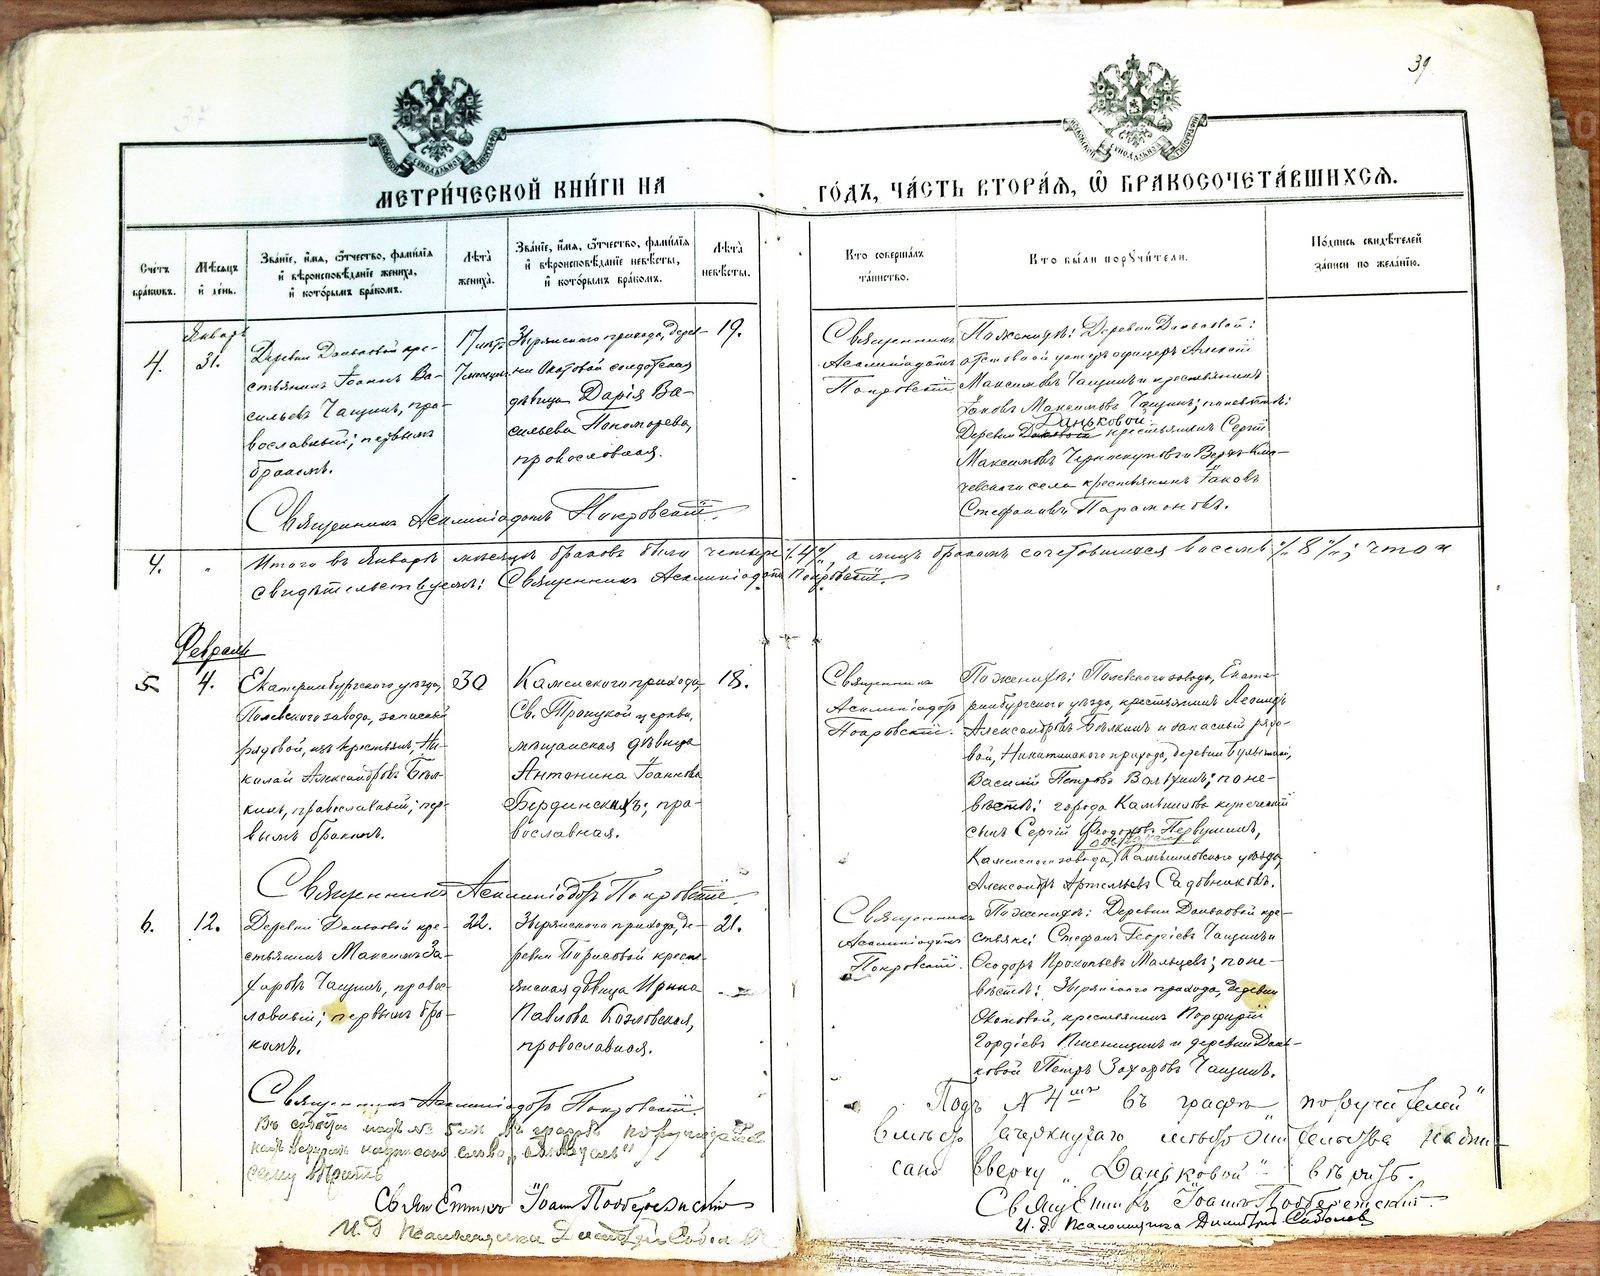 39
МЕТРИ́ЧЕСКОЙ КНИ́ГИ НА ГО́ДЪ, ЧА́СТЬ ВТОРА́Я, Ѿ БРАКОСОЧЕТА́ВШИХСЯ.
Сче́тъ бра́кωвъ.
Мѣ́сяцъ и́ де́нь.
Зва́нїе, и́мя, ѻ́тчество, фами́лїя и́ вѣроисповѣ́данїе жениха̀, и́ кото́рымъ бра́комъ.
Лѣ́та̀ жениха̀.
Зва́нїе, и́мя, ѻ́тчество, фами́лїя и́ вѣроисповѣ́данїе невѣ́сты, и́ кото́рымъ бра́комъ.
Лѣ́та̀ невѣ́сты.
Кто̀ соверша́лъ та́инство.
Кто̀ бы́ли порꙋчи́тели.
По́дпись свидѣ́телей за́писи по жела́нїю.
4.
Январь
31.
Деревни Даньковой кре-
стьянинъ Іоаннъ Ва-
сильевъ Чащинъ, пра-
вославный; первымъ
бракомъ.
17 лѣтъ
7 месяцевъ
Зырянского прихода, дерев-
ни Окатовой солдатская
дѣвица Дарія Ва-
сильева Пономарева,
православная.
19.
Священникъ
Асклипіадотъ
Покровскій
По женихѣ: Деревни Даньковой:
отставной унтеръ офицеръ Алексѣй
Максимовъ Чащинъ и крестьянинъ
Іаковъ Максимовъ Чащинъ; по невѣстѣ:
Даньковой
Деревни крестьянинъ Сергій
Максимовъ и Верхъ-Клю-
чевского села крестьянинъ Іаковъ
Стефановъ Парамоновъ.
Священникъ Асклипіадотъ Покровскій.
4.
"
Итого въ Январѣ мѣсяцѣ браковъ было четыре /:4:/, а лицъ бракомъ сочетавшихся восемь /:8:/; что и
свидѣтельствуемъ: Священникъ Асклипіадотъ Покровскій.
Февраль
5
4.
Екатеринбургского уѣзда,
Полевского завода, запасный
рядовой, изъ крестьянъ, Ни-
колай Александровъ Бѣл-
кинъ, православный; пер-
вымъ бракомъ.
30
Каменского прихода,
Св. Троицкой церкви,
мѣщанская дѣвица
Антонина Іоаннова
Бердинскихъ; пра-
вославная.
18.
Священникъ
Асклипіадотъ
Покровскій.
По женихѣ: Полевского завода, Екате-
ринбургского уѣзда, крестьянинъ Леонидъ
Александровъ Бѣлкинъ и запасный рядо-
вой, Никитинского прихода, деревни
Василій Петровъ; по не-
вѣстѣ: города Камышлова купеческій
сынъ Сергій Ѳеодоровъ Первушинъ,
Каменского завода, Камышловского уѣзда,
Александръ Артемьевъ Садовниковъ.
Священникъ Асклипіадотъ Покровскій.
6.
12.
Деревни Даньковой кре-
стьянинъ Максимъ За-
харовъ Чащинъ, право-
славный; первымъ бра-
комъ.
22.
Зырянского прихода, де-
ревни Борисовой кресть-
янская дѣвица Ирина
Павлова Козловская,
православная.
21.
Священникъ
Асклипіадотъ
Покровскій.
По женихѣ: Деревни Даньковой кре-
стьяне: Стефанъ Георгіевъ Чащинъ и
Ѳеодоръ Прокопьевъ Мальцевъ; по не-
вѣстѣ: Зырянского прихода, деревни
Окатовой, крестьянинъ Порфирій
Гордіевъ Пшеницинъ и деревни Дань-
ковой Петръ Захаровъ Чащинъ.
Священникъ Асклипіадотъ Покровскій.
Въ статьѣ подъ № 5 въ графѣ
надписано слово
сему вѣрить
Священникъ Іоаннъ
И. д. Псаломщика Димитрій
Подъ № 4мъ въ графѣ "поручителей"
вмѣсто зачеркнутаго надпи-
сано вверху "Даньковой" вѣрить.
Священникъ Іоаннъ
И. д. Псаломщика Димитрій